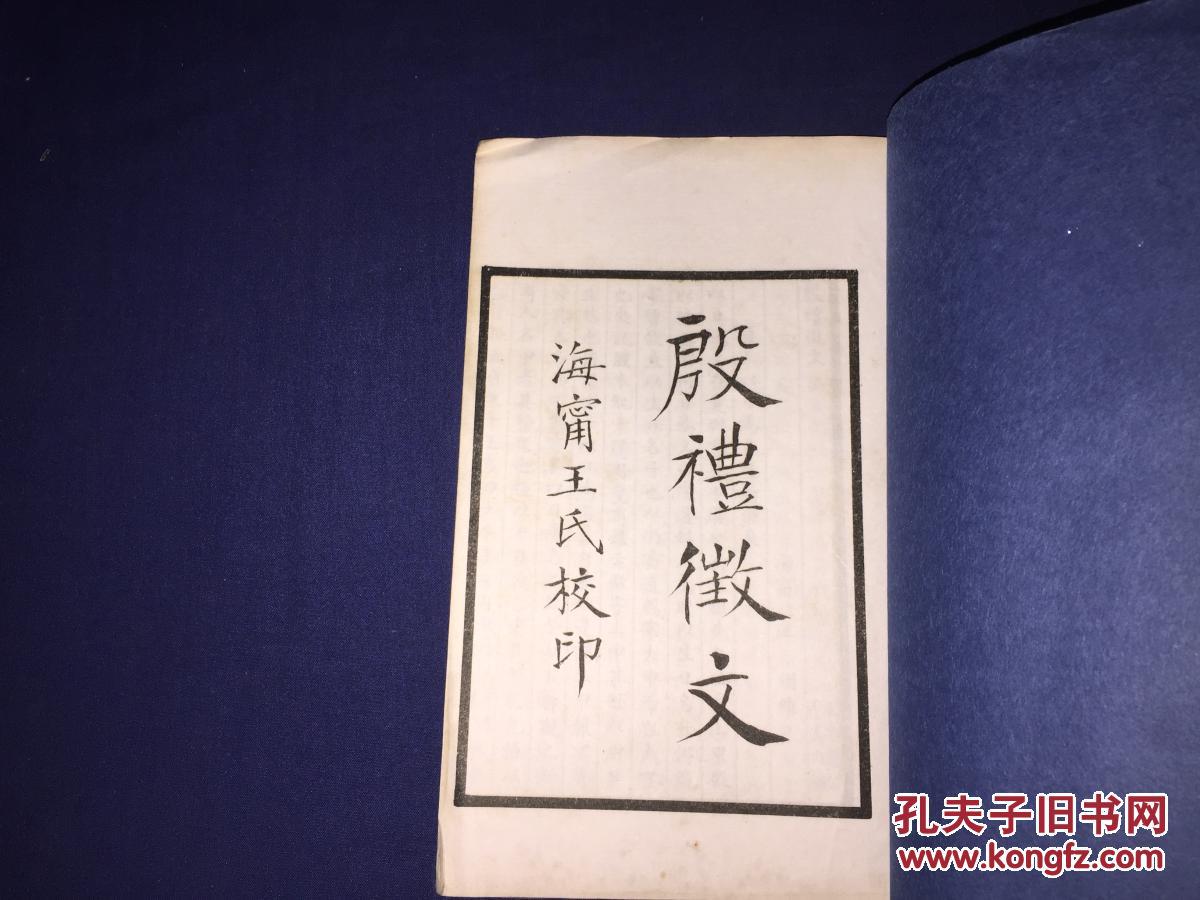 殷禮徵文
海甯王氏校印
孔夫子旧书网
www.kongfz.com